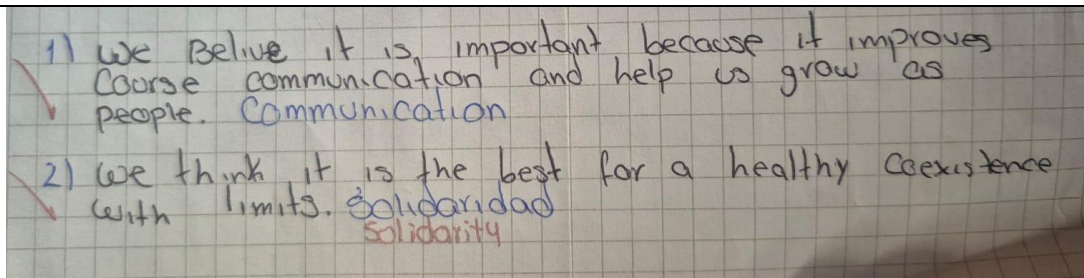 1) we Belive it is important because it improves
Course communication and help us grow as
people. Communication
2) we think it is the best for a healthy Coexistence
with limits. Solidaridad
Solidarity